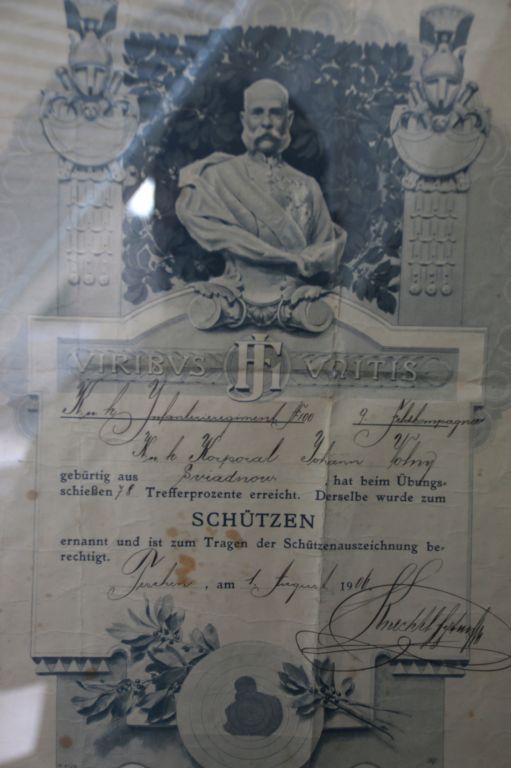 VIRIBVS FJI VNITIS
K. u. k. Infanterieregiment № 100 9. Feldkompagnie
K. u. k. Korporal Johann
gebürtig aus Sviadnow, hat beim Übungs-
schießen 78 Trefferprozente erreicht. Derselbe wurde zum
SCHÜTZEN
ernannt und ist zum Tragen der Schützenauszeichnung be-
rechtigt.
Teschen, am 1. August 1906